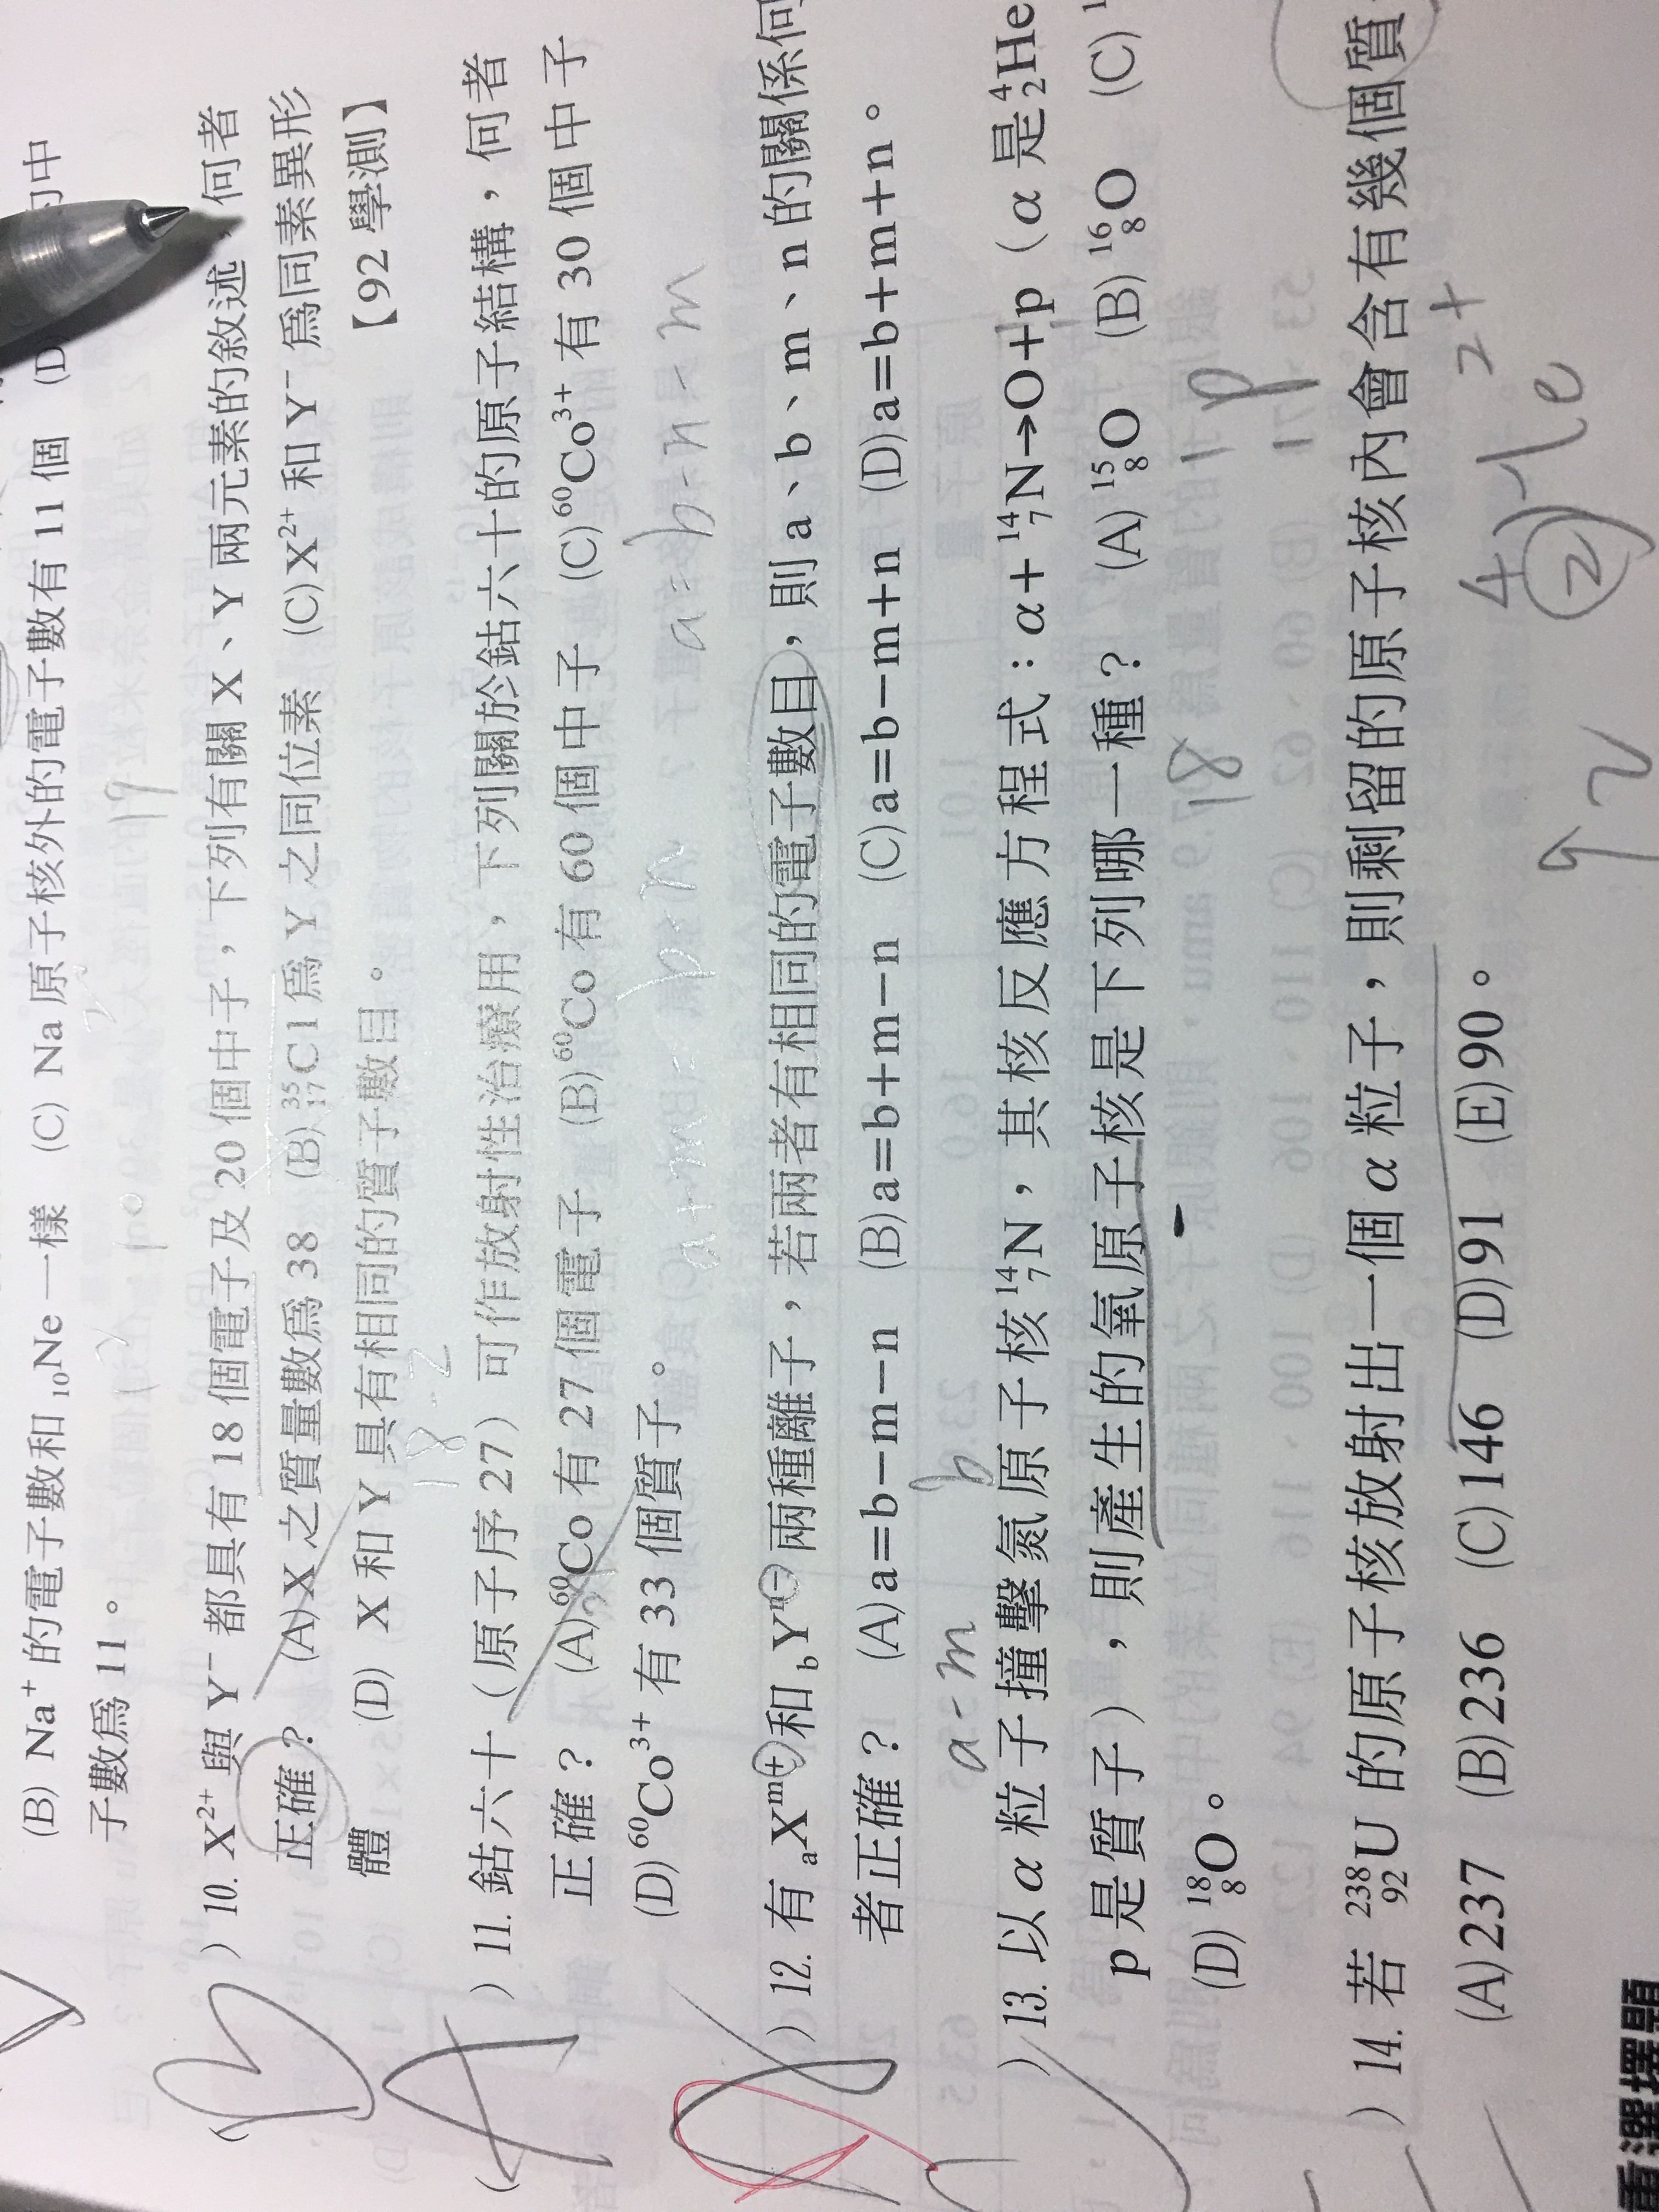 的中
(B) Na⁺ 的電子數和 ₁₀Ne 一樣 (C) Na 原子核外的電子數有 11 個 (D
子數為 11。
) 10. X²⁺ 與 Y⁻ 都具有 18 個電子及 20 個中子，下列有關 X、Y 兩元素的敘述，何者
正確？ (A) X 之質量數為 38 (B) ³⁵₁₇Cl 為 Y 之同位素 (C) X²⁺ 和 Y⁻ 為同素異形
體 (D) X 和 Y 具有相同的質子數目。 【92 學測】
18-2
B
) 11. 鈷六十（原子序 27）可作放射性治療用，下列關於鈷六十的原子結構，何者
正確？ (A) ⁶⁰Co 有 27 個電子 (B) ⁶⁰Co 有 60 個中子 (C) ⁶⁰Co³⁺ 有 30 個中子
(D) ⁶⁰Co³⁺ 有 33 個質子。
A
a=b-n-m
) 12. 有 ₐXᵐ⁺ 和 bYⁿ⁻ 兩種離子，若兩者有相同的電子數目，則 a、b、m、n 的關係何
者正確？ (A) a=b−m−n (B) a=b+m−n (C) a=b−m+n (D) a=b+m+n。
a-m b
) 13. 以 α 粒子撞擊氮原子核 ¹⁴₇N，其核反應方程式：α+¹⁴₇N→O+p（α 是 ⁴₂He
p 是質子），則產生的氧原子核是下列哪一種？ (A) ¹⁵₈O (B) ¹⁶₈O (C) ¹
(D) ¹⁸₈O。
18 1P
) 14. 若 ²³⁸₉₂U 的原子核放射出一個 α 粒子，則剩留的原子核內會含有幾個質
(A)237 (B)236 (C)146 (D)91 (E)90。
92 ⁴₂He²⁺
重選擇題